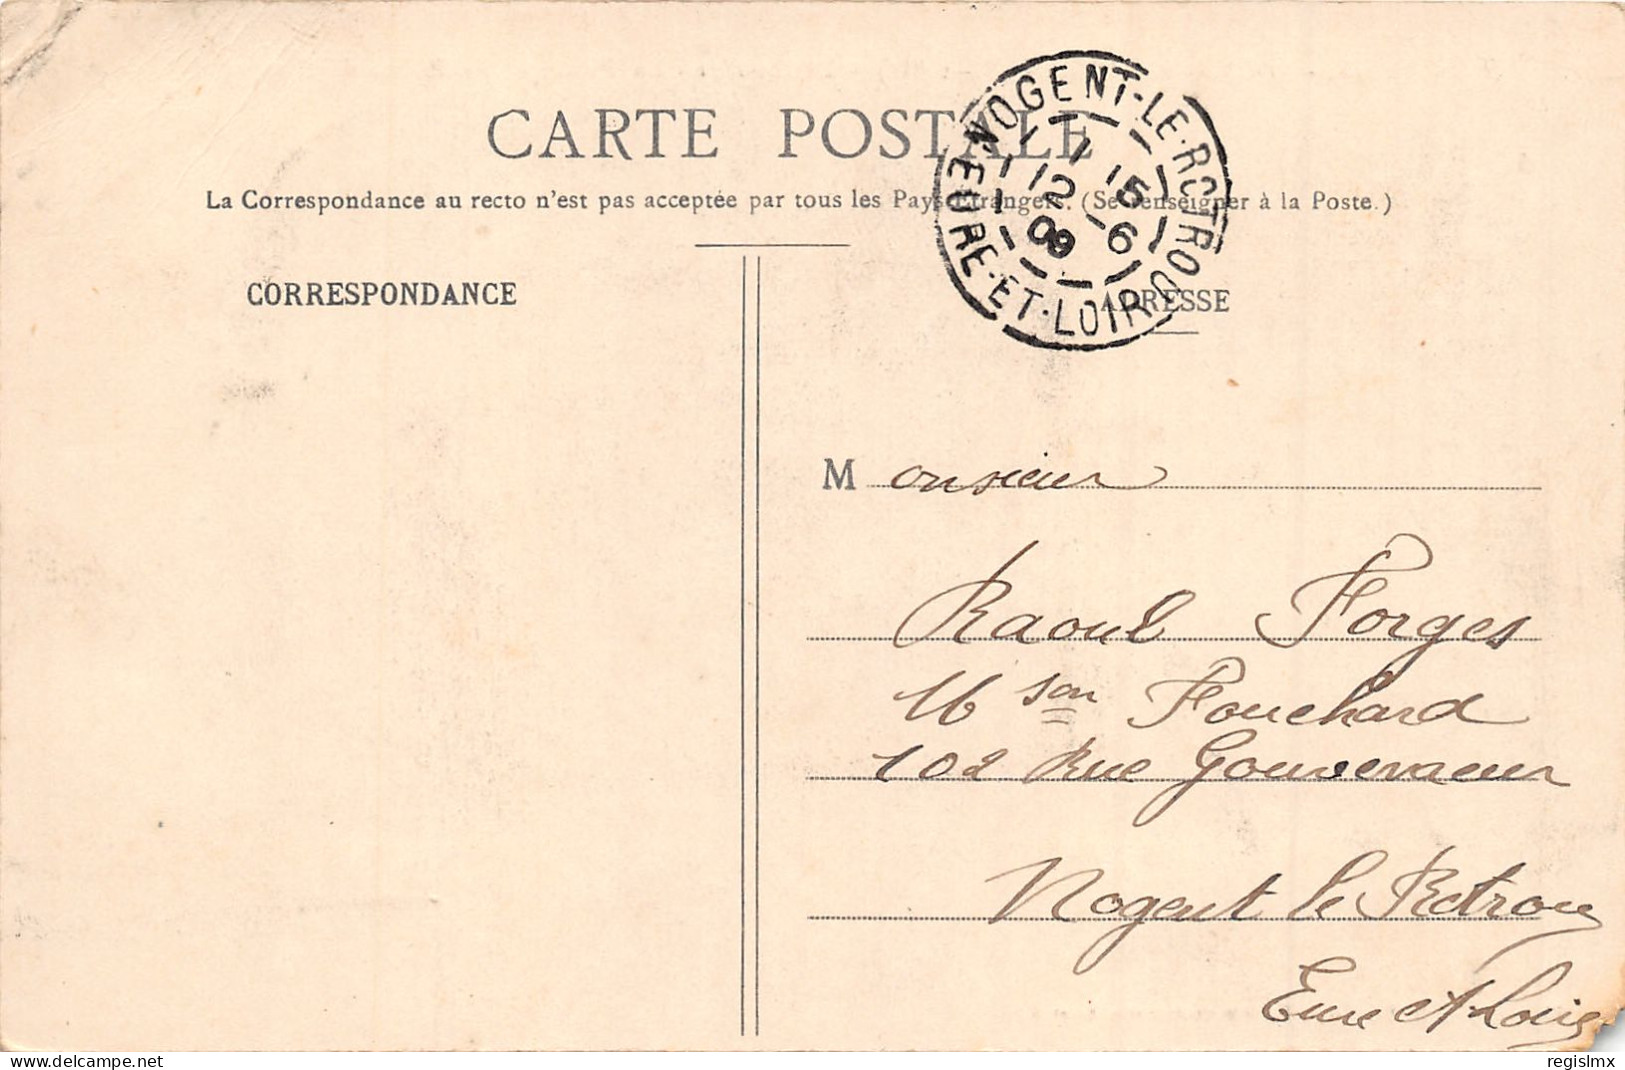 CARTE POSTALE
La Correspondance au recto n'est pas acceptée par tous les Pays Etrangers. (Se renseigner à la Poste.)
NOGENT-LE-ROTROU
12 15
12 -6
09
EURE-ET-LOIR
CORRESPONDANCE
ADRESSE
Monsieur
Raoul Forges
Mson Fouchard
102 Rue Gouverneur
Nogent le Rotrou
Eure et Loire
regislmx